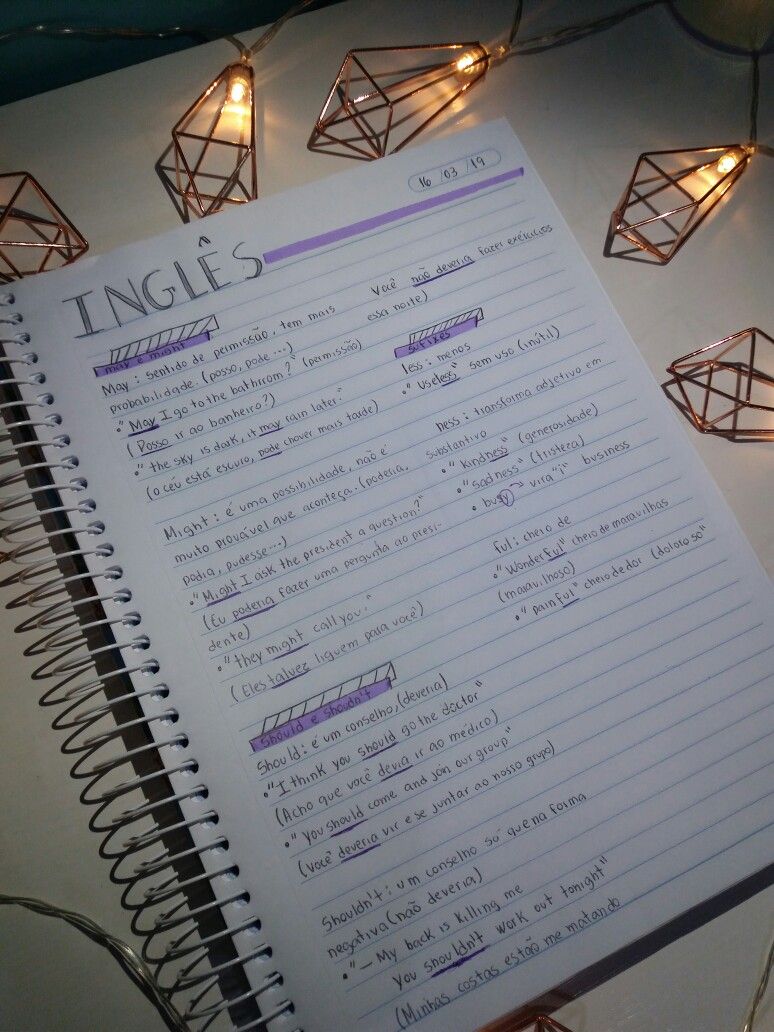 16/03/19
INGLÊS
may e might
May: sentido de permissão, tem mais
probabilidade. (posso, pode...)
• "May I go to the bathroom?" (permissão)
(Posso ir ao banheiro?)
• "the sky is dark, it may rain later."
(o céu está escuro, pode chover mais tarde)
Might: é uma possibilidade, não é
muito provável que aconteça. (poderia,
podia, pudesse...)
• "Might I ask the president a question?"
(Eu poderia fazer uma pergunta ao presi-
dente)
• "they might call you."
(Eles talvez liguem para você)
Should e Shoudn't
Should: é um conselho, (deveria)
• "I think you should go the doctor"
(Acho que você devia ir ao médico)
• "You should come and join our group"
(Você deveria vir e se juntar ao nosso grupo)
Shouldn't: um conselho só que na forma
negativa (não deveria)
• "- My back is killing me
You shouldn't work out tonight"
(Minhas costas estão me matando
Você não deveria fazer exércicios
essa noite)
sufixes
less: menos
• "useless" sem uso (inútil)
ness: transforma adjetivo em
substantivo
• "kindness" (generosidade)
• "sadness" (tristeza)
• busy → vira "i" business
ful: cheio de
• "Wonderful" cheio de maravilhas
(maravilhoso)
• "painful" cheio de dor (doloroso"